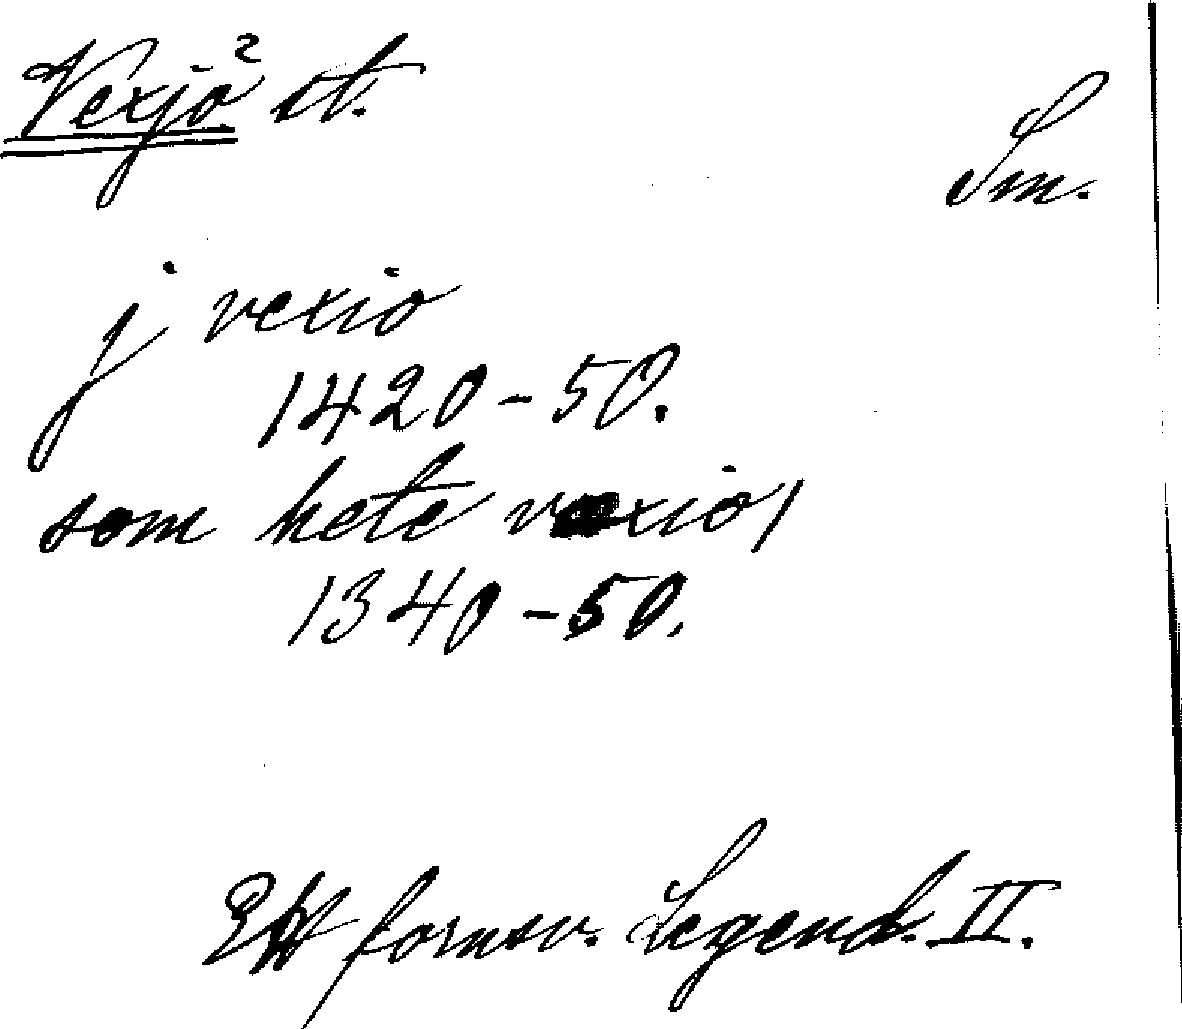 Vexjö² st.
Sm.
j vexio
1420-50.
som hete væxio,
1340-50.
Ett fornsv. Legend. II.